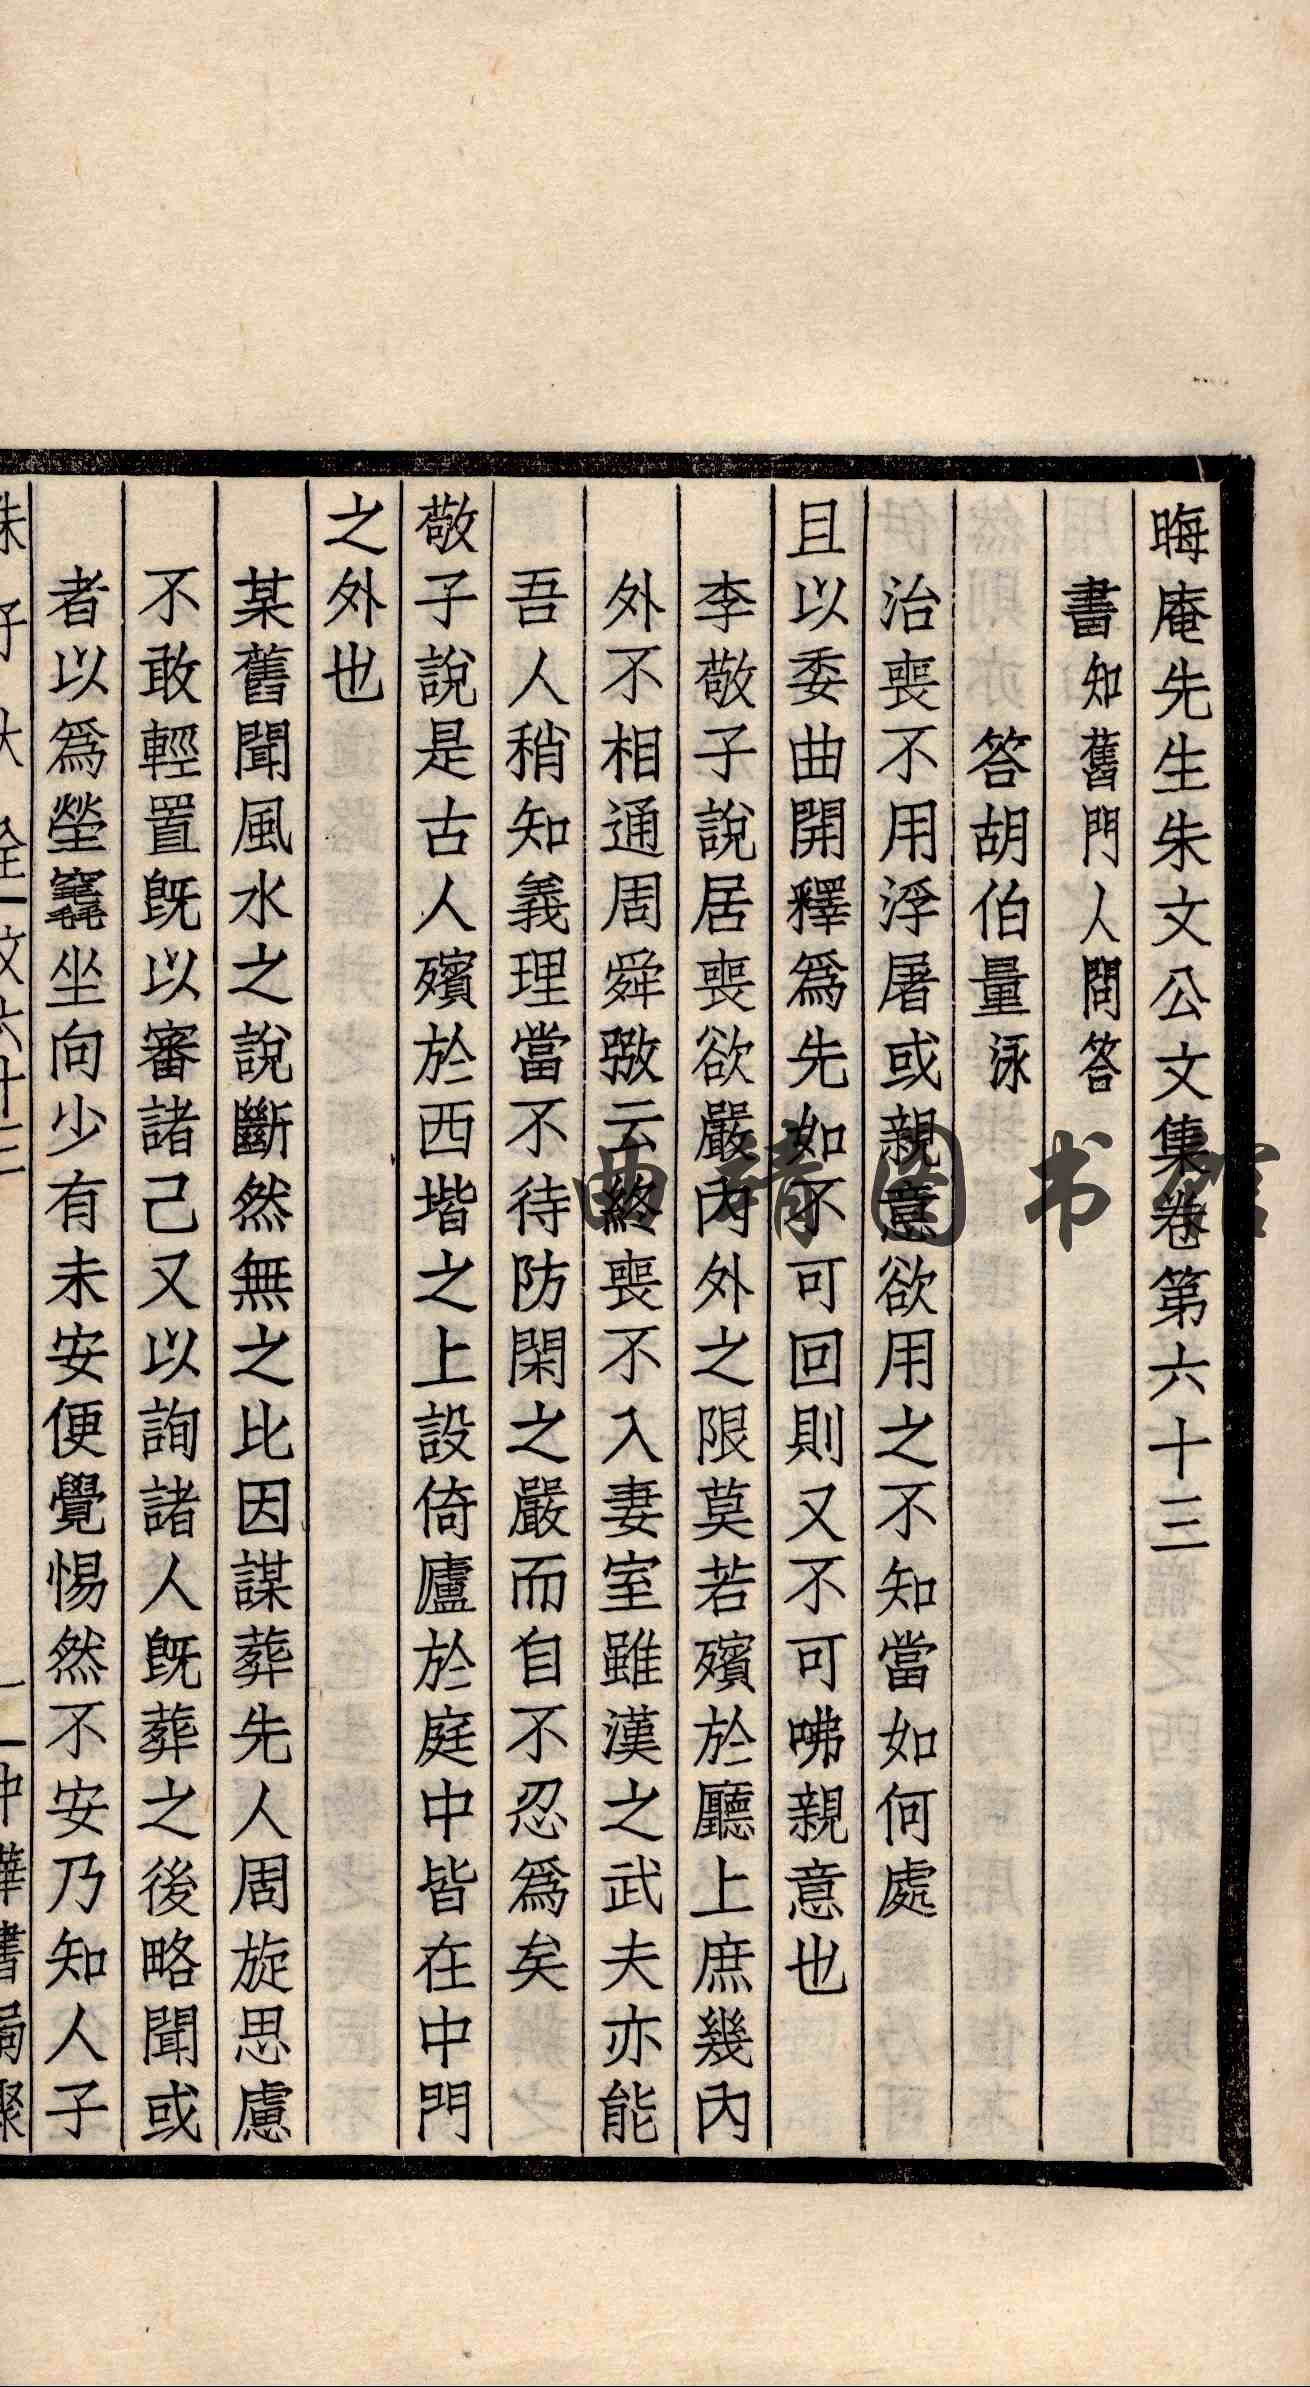 晦庵先生朱文公文集卷第六十三
書知舊門人問答
答胡伯量泳
治喪不用浮屠或親意欲用之不知當如何處
且以委曲開釋爲先如不可回則又不可咈親意也
李敬子說居喪欲嚴內外之限莫若殯於廳上庶幾內
外不相通周舜弼云終喪不入妻室雖漢之武夫亦能
吾人稍知義理當不待防閑之嚴而自不忍爲矣
敬子說是古人殯於西堦之上設倚廬於庭中皆在中門
之外也
某舊聞風水之說斷然無之比因謀葬先人周旋思慮
不敢輕置旣以審諸己又以詢諸人旣葬之後略聞或
者以爲塋竁坐向少有未安便覺惕然不安乃知人子
朱子大全 文六十三 一 中華書局聚
曲靖图书馆